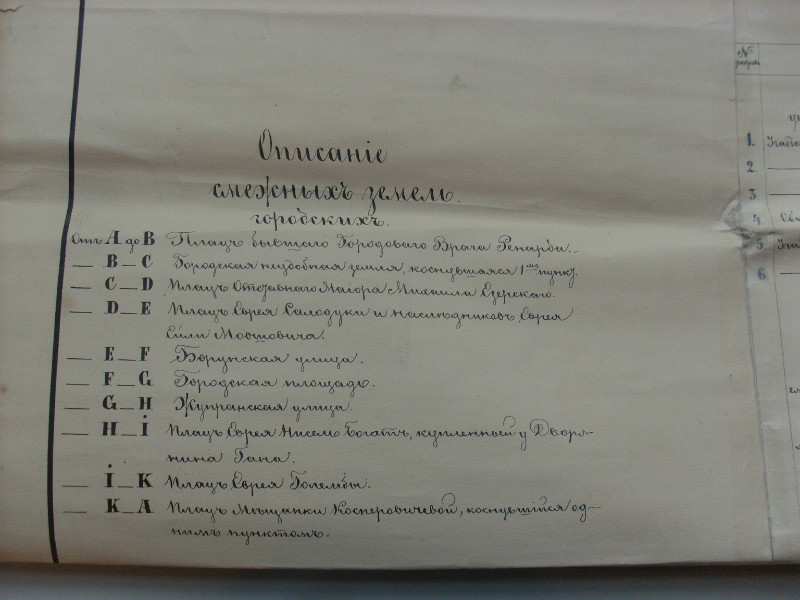 Описаніе
смежныхъ земель
городскихъ.
Отъ A до B Плацъ бывшаго Городоваго Врача Ренарда.
B–C Городская неудобная земля, коснувшаяся 1мъ пункт.
C–D Плацъ Отставнаго Маіора Михаила Езерскаго.
D–E Плацъ Еврея Салодухи и наслѣдниковъ Еврея
Ели Мовшовича.
E–F Борунская улица.
F–G Городская площадь.
G–H Жупранская улица.
H–İ Плацъ Еврея Нисель Богатъ, купленный у Дворя-
нина Гана.
İ–K Плацъ Еврея Голембы.
K–A Плацъ Мѣщанки Косперовичевой, коснувшійся од-
нимъ пунктомъ.
№
1.
2.
3
4.
5
6